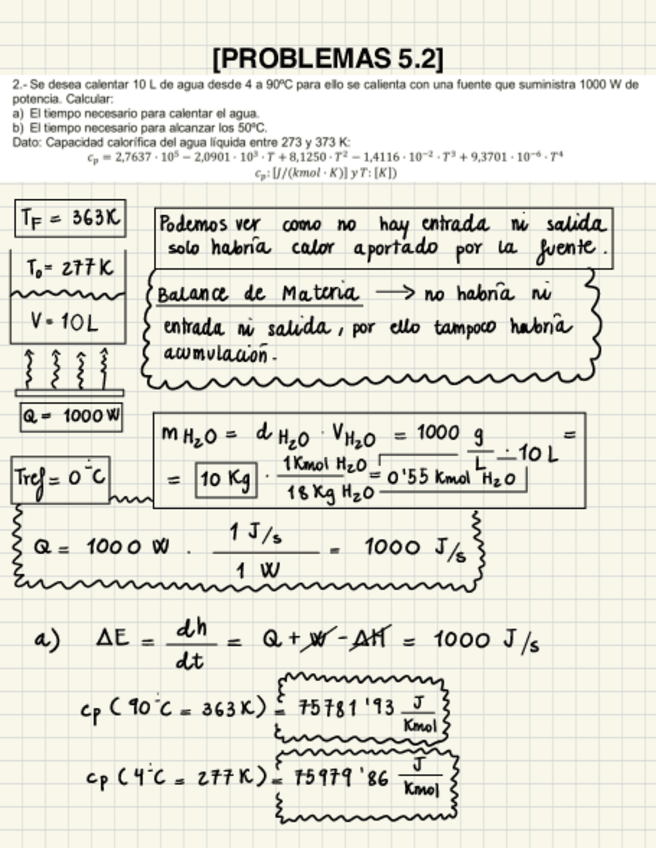 [PROBLEMAS 5.2]
2.- Se desea calentar 10 L de agua desde 4 a 90ºC para ello se calienta con una fuente que suministra 1000 W de
potencia. Calcular:
a) El tiempo necesario para calentar el agua.
b) El tiempo necesario para alcanzar los 50ºC.
Dato: Capacidad calorífica del agua líquida entre 273 y 373 K:
c_p = 2,7637 · 10⁵ − 2,0901 · 10³ · T + 8,1250 · T² − 1,4116 · 10⁻² · T³ + 9,3701 · 10⁻⁶ · T⁴
c_p: [J/(kmol · K)] y T: [K])
T_F = 363K
T₀ = 277K
V = 10L
Q = 1000 W
Tref = 0°C
Podemos ver como no hay entrada ni salida
solo habría calor aportado por la fuente.
Balance de Materia → no habría ni
entrada ni salida, por ello tampoco habría
acumulación.
m H₂O = d H₂O · V H₂O = 1000 g/L · 10L =
= 10 Kg · 1Kmol H₂O / 18 Kg H₂O = 0'55 Kmol H₂O
Q = 1000 W · 1 J/s / 1 W = 1000 J/s
a) ΔE = dh/dt = Q + W - ΔH = 1000 J/s
cp (90°C = 363K) = 75781'93 J/Kmol
cp (4°C = 277K) = 75979'86 J/Kmol